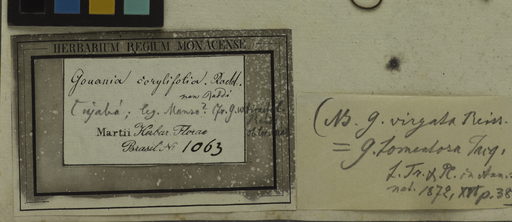 HERBARIUM REGIUM MONACENSE
Gouania corylifolia. Radd.
non Raddi
Cujabá; leg. Manso?
Martii Herbar. Florae
Brasil. No 1063
(NB. G. virgata Reiss.
= G. tomentosa Jacq.
f. Tr. & Pl. in Ann. sc.
nat. 1872, XVI p. 38